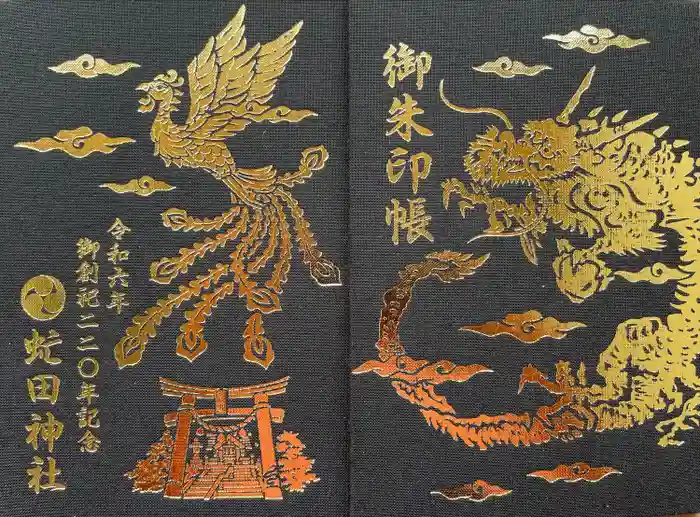 御朱印帳
令和六年
御創祀二二〇年記念
虻田神社